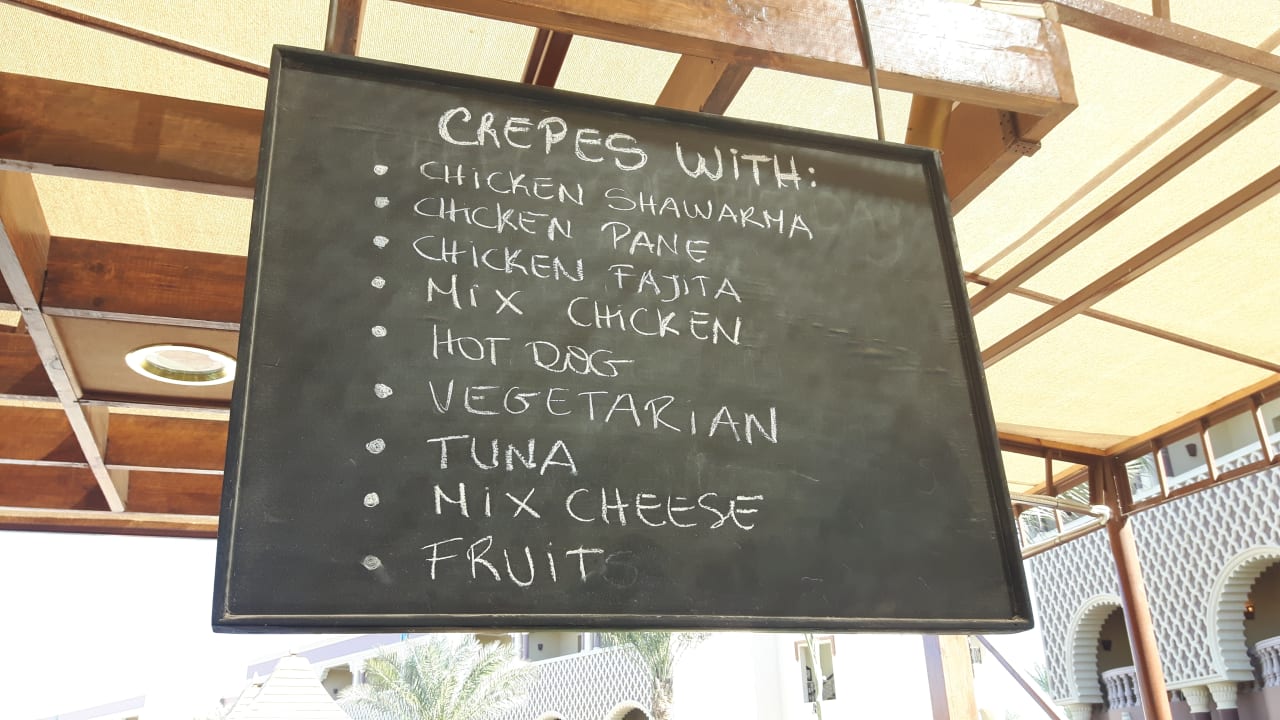 CREPES WiTH:
• CHiCKEN SHAWARMA
• CHiCKEN PANE
• CHiCKEN FAJITA
• MiX CHiCKEN
• HOT DOG
• VEGETARiAN
• TUNA
• MiX CHEESE
• FRUiT